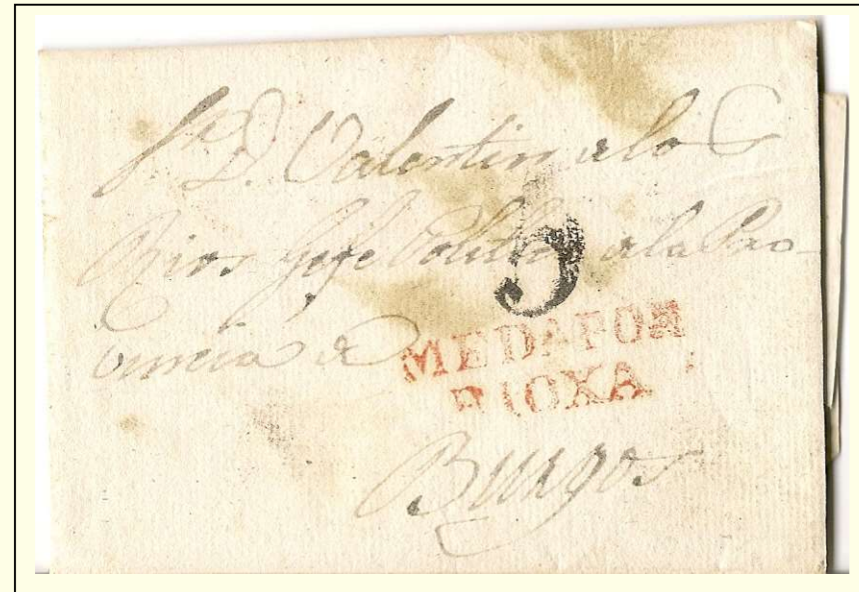 Sr. D. Valentin de los
Rios Gefe Politico de la Pro-
vincia de
5
MEDAPOM
RIOXA
Burgos